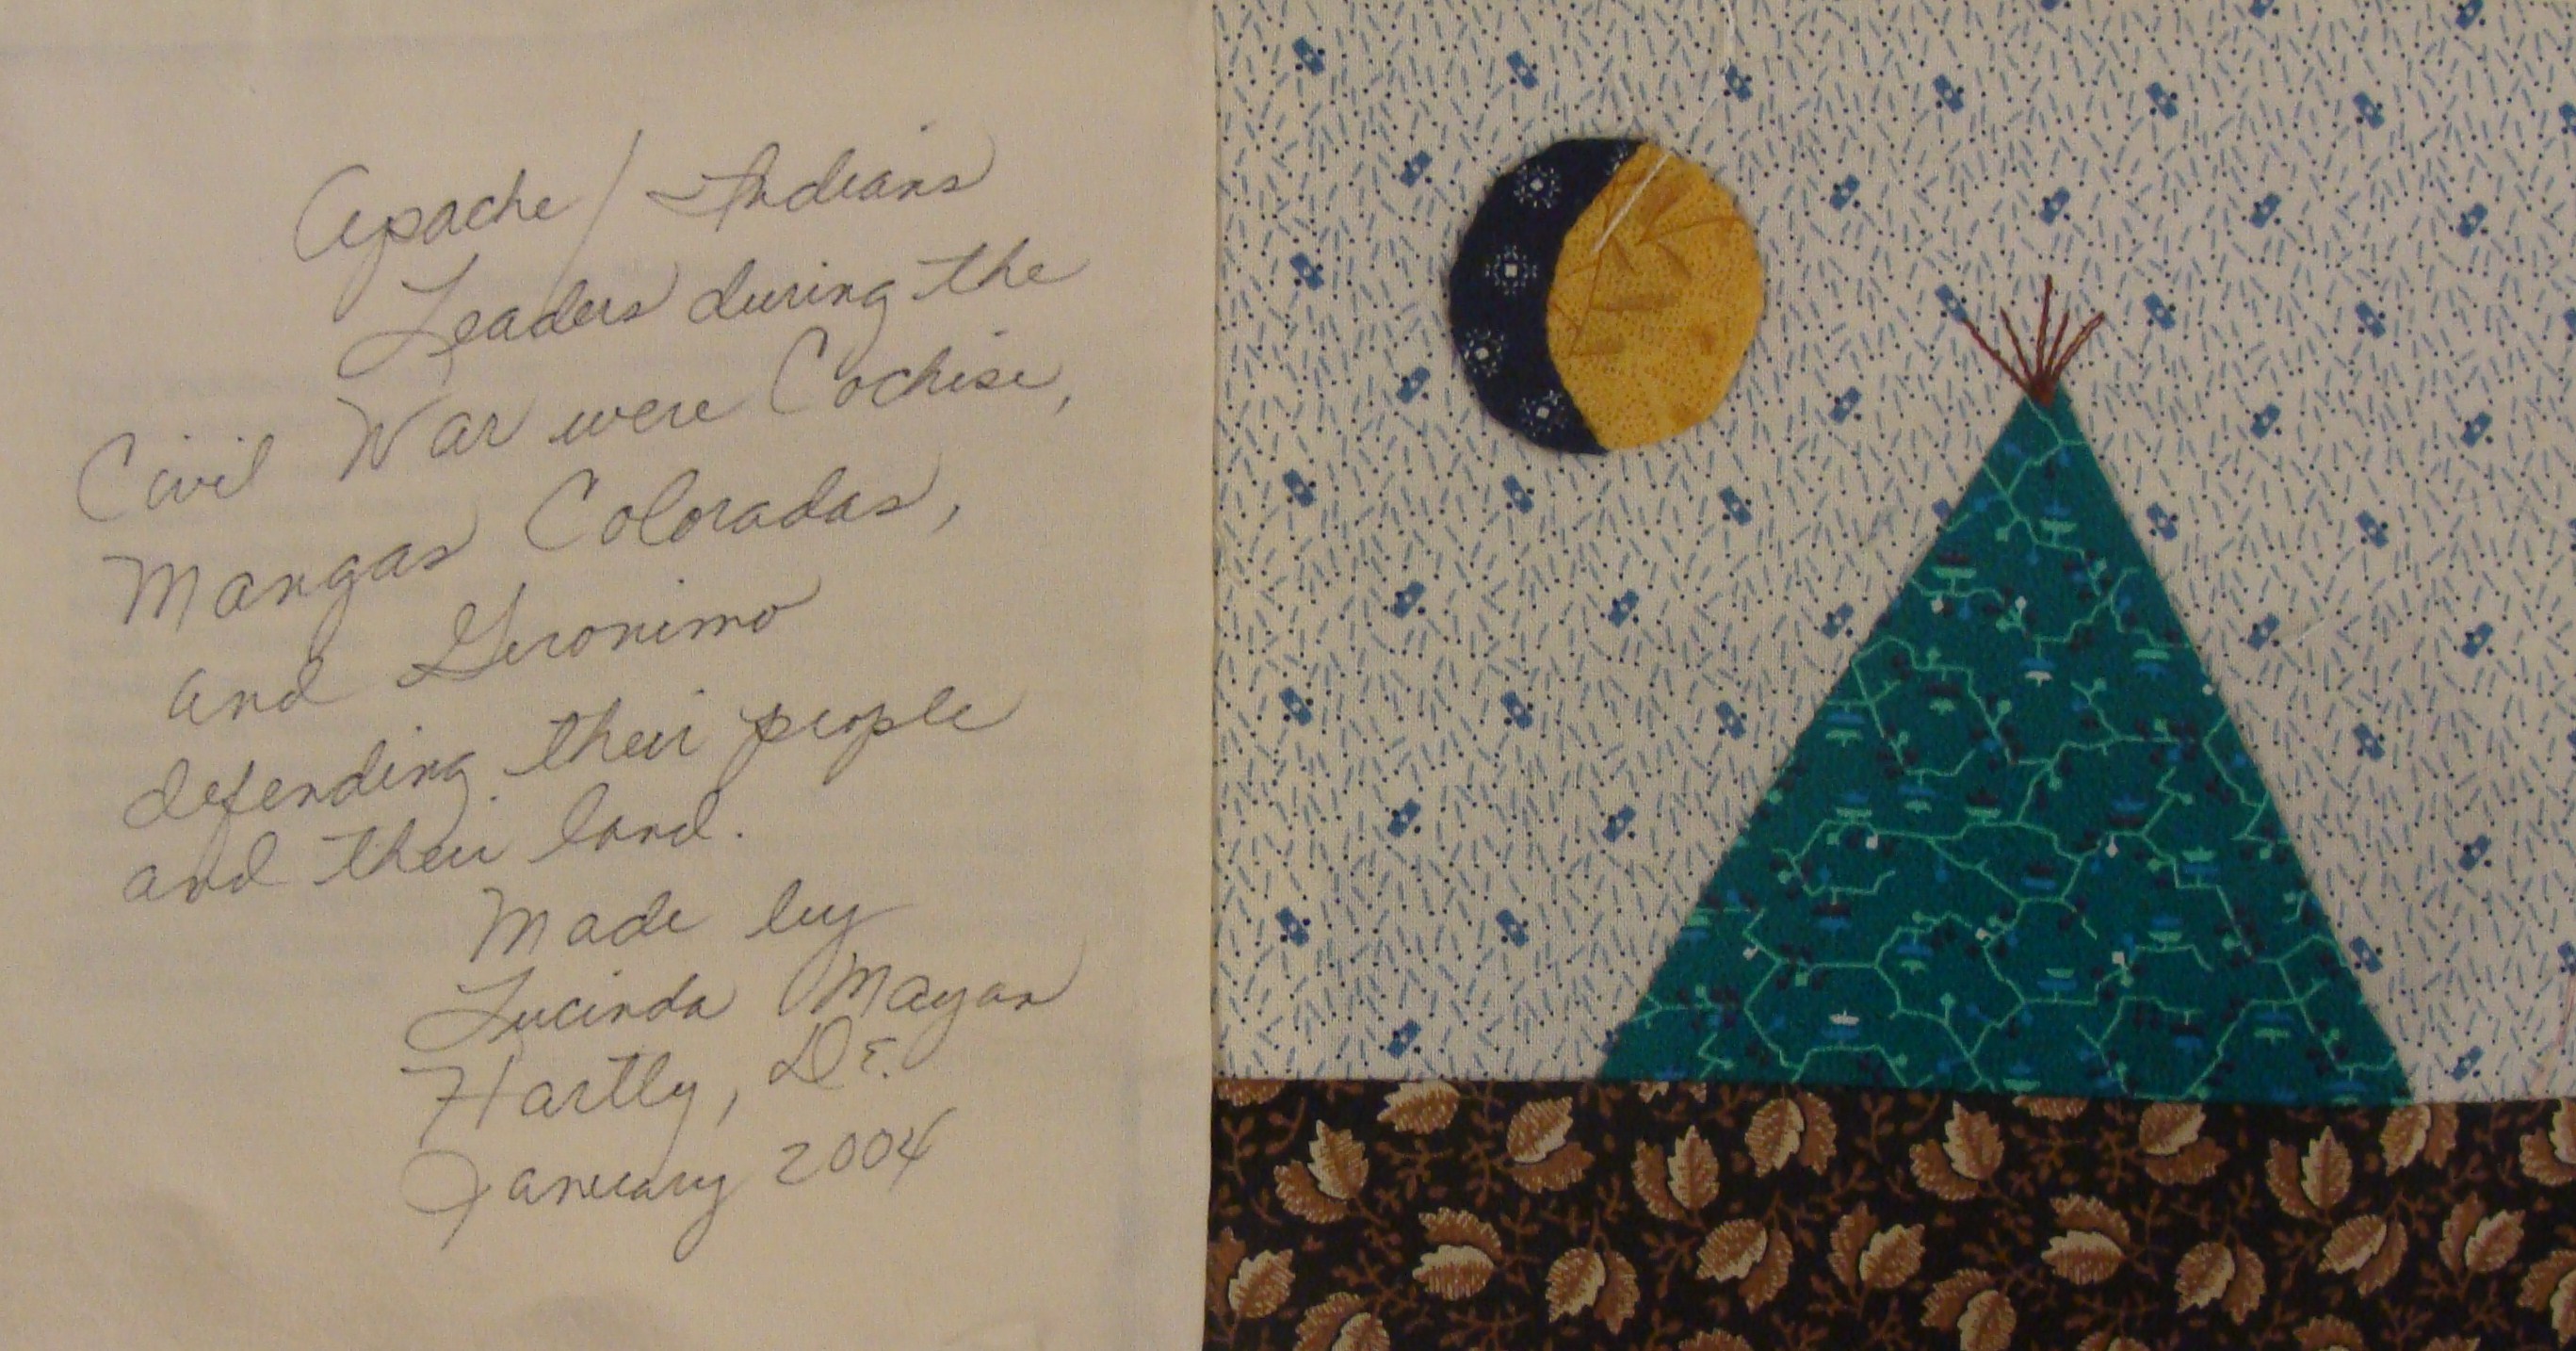 Apache / Indians
Leaders during the
Civil War were Cochise,
Mangas Coloradas,
and Geronimo
defending their people
and their land.
Made by
Lucinda Mayan
Hartly, De.
January 2004